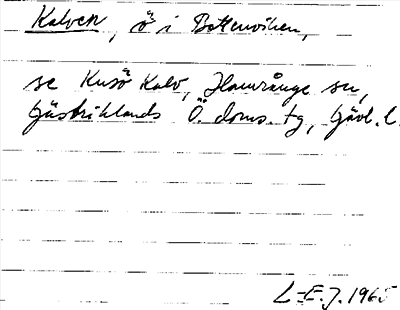 Kalven, ö i Bottenviken,
se Kusö Kalv, Hamrånge sn,
Gästriklands Ö. doms. tg, Gävl. l.
L-E.J. 1965